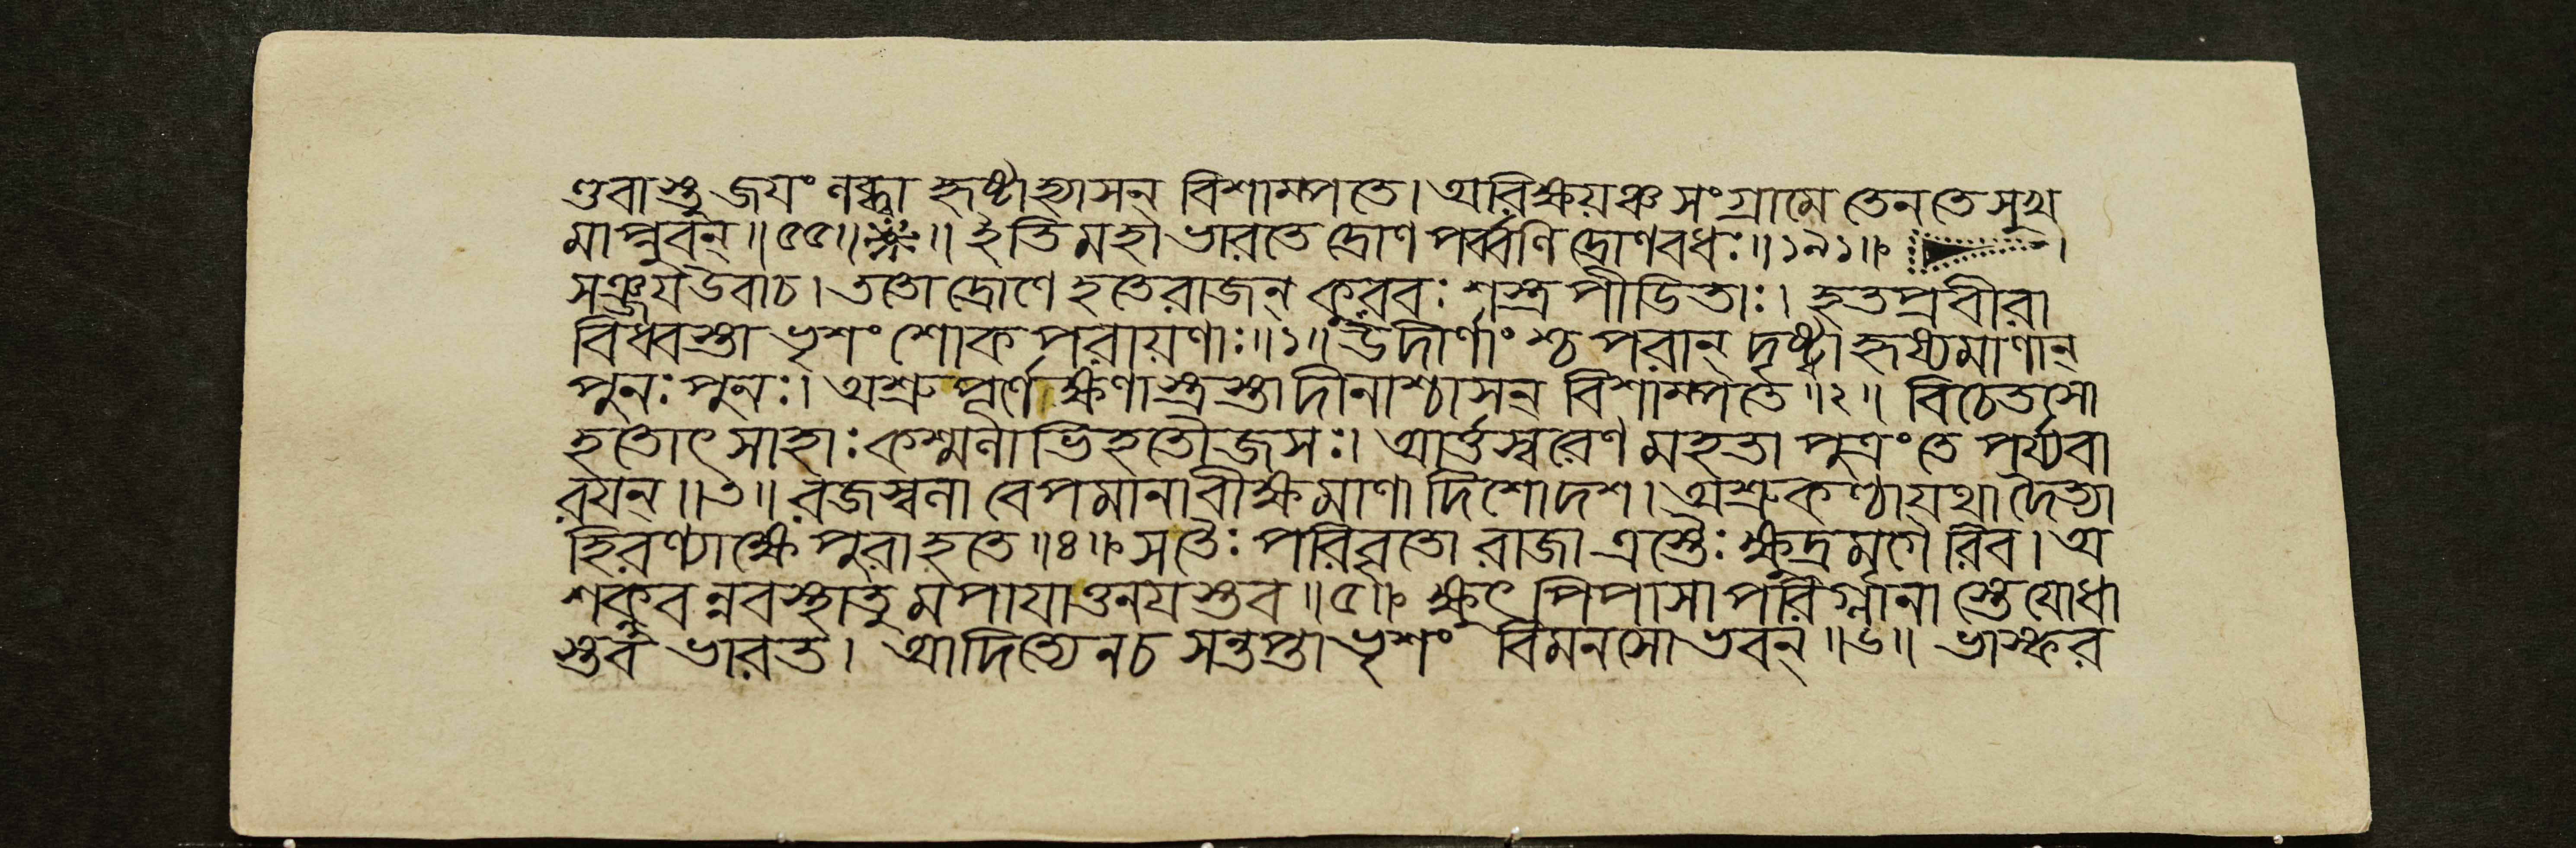 ণ্ডবাস্তু জযং লব্ধা হৃষ্টাহ্যাসন্ বিশাম্পতে। অরিক্ষয়ঞ্চ সংগ্রামে তেন তে সুখ
মাপ্নুবন্॥৫৫॥❈॥ ইতি মহাভারতে দ্রোণ পর্ব্বণি দ্রোণবধঃ॥১৯১॥ ।
সঞ্জয উবাচ। ততো দ্রোণে হতে রাজন্ কুরবঃ শস্ত্র পীডিতাঃ। হতপ্রবীরা
বিধ্বস্তা ভৃশং শোক পরায়ণাঃ॥১॥ উদীর্ণাংশ্চ পরান্ দৃষ্ট্বা হৃষ্যমাণান্
পুনঃ পুনঃ। অশ্রুপূর্ণেক্ষণাস্ত্রস্তা দীনাশ্চাসন্ বিশাম্পতে॥২॥ বিচেতসো
হতোৎসাহাঃ কশ্মলাভিহতৌজসঃ। আর্ত্তস্বরেণ মহতা পুত্রং তে পর্য্যবা
রযন্॥৩॥ রজস্বলা বেপমানা বীক্ষমাণা দিশোদশ। অশ্রুকণ্ঠা যথা দৈত্যা
হিরণ্যাক্ষে পুরা হতে॥৪॥ স তৈঃ পরিবৃতো রাজা ত্রস্তৈঃ ক্ষুদ্রমৃগৈরিব। অ
শক্নুবন্নবস্থাতু মপাযাত্তনযস্তব॥৫॥ ক্ষুৎপিপাসা পরির্গ্লানা স্তে যোধা
স্তব ভারত। আদিত্যেন চ সন্তপ্তা ভৃশং বিমনসো ভবন্॥৬॥ ভাস্কর